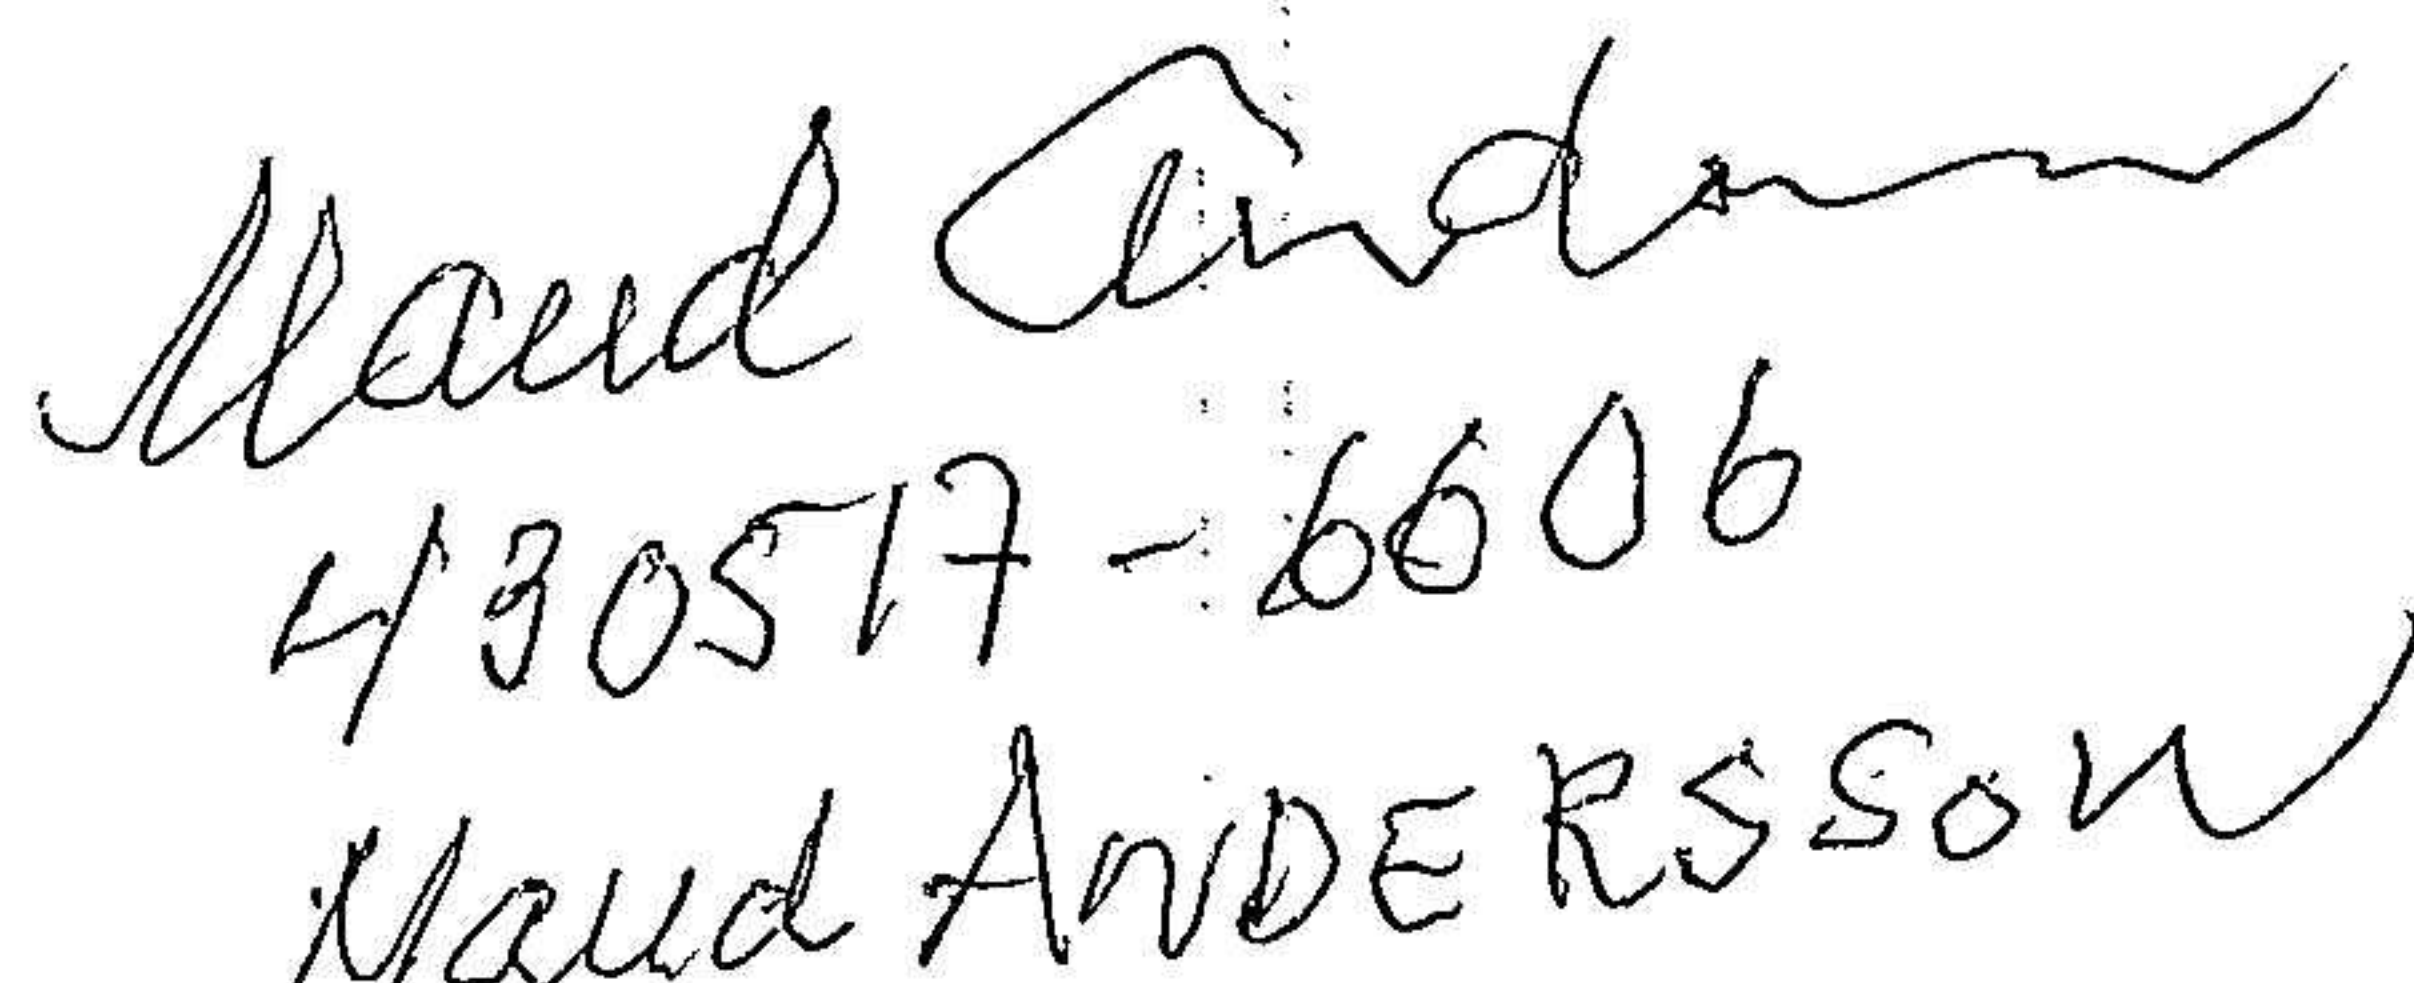 Maud Andersson
430517-6606
Maud ANDERSSON